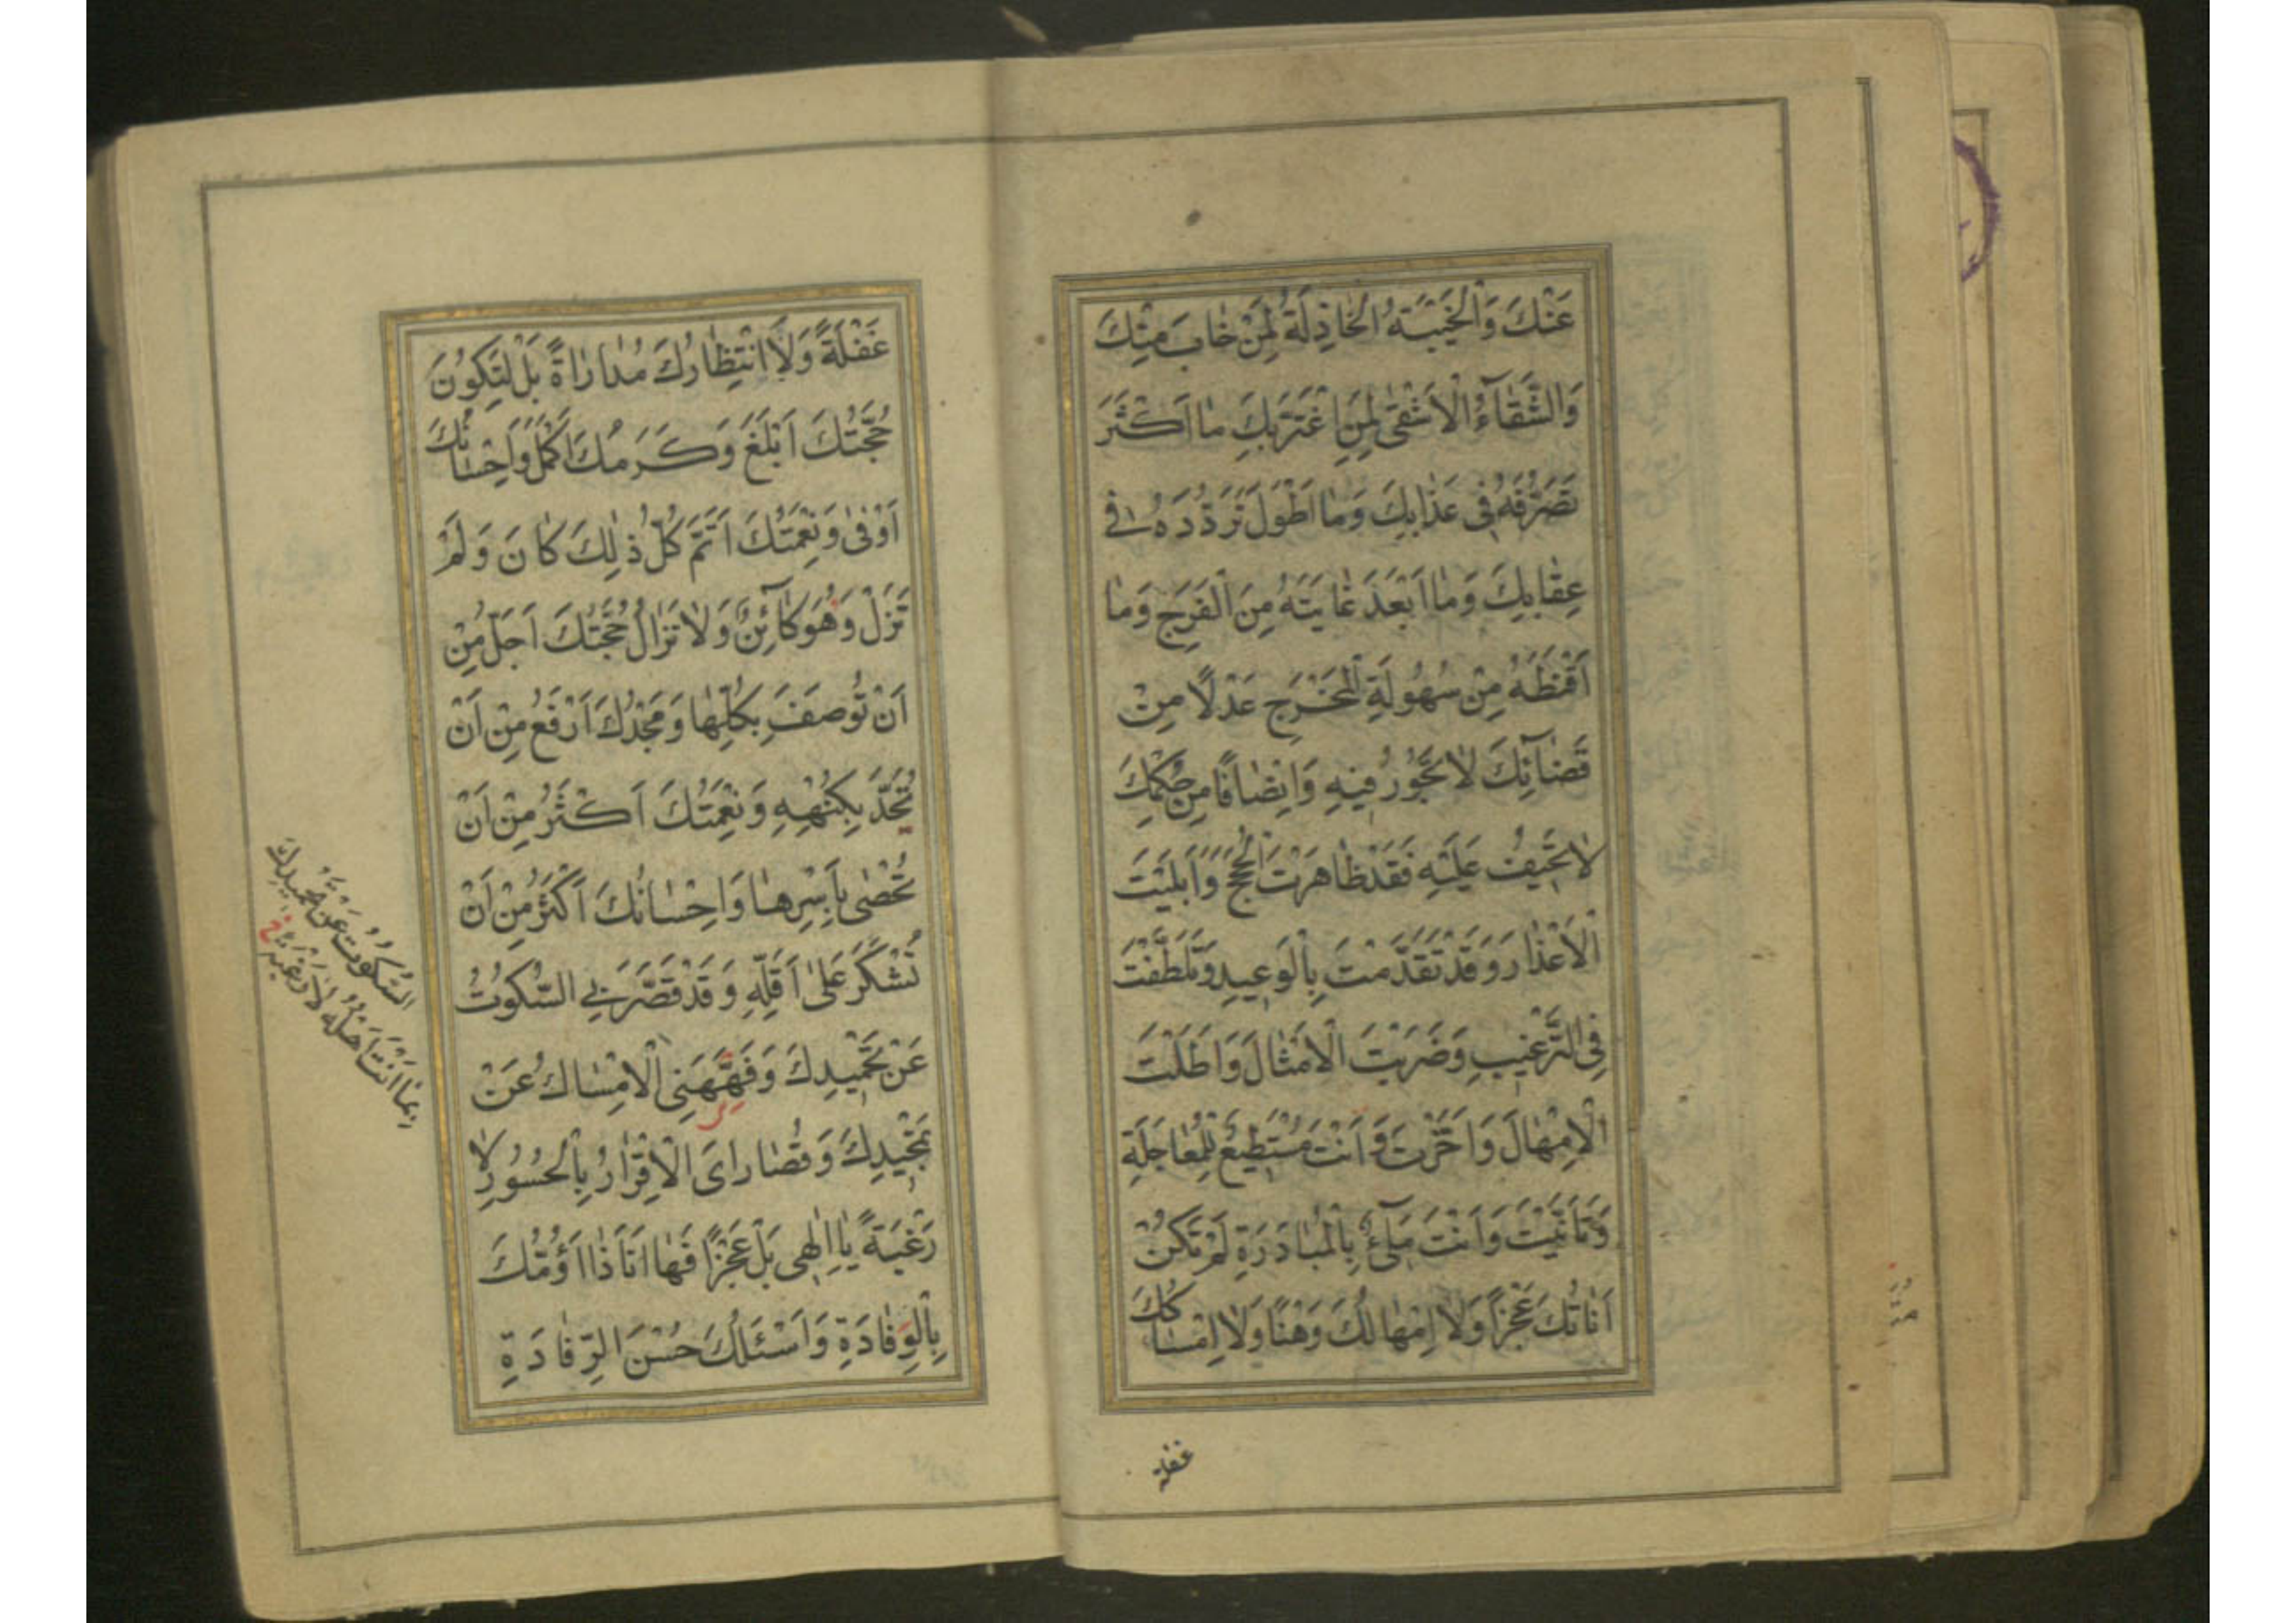 عَنْكَ وَالْخَيْبَةُ الْخَاذِلَةُ لِمَنْ خَابَ مِنْكَ
وَالشَّقَآءُ الْاَشْقٰى لِمَنِ اغْتَرَّ بِكَ مٰا اَكْثَرَ
تَصَرُّفَهُ فِى عَذٰابِكَ وَمٰا اَطْوَلَ تَرَدُّدَهُ فِى
عِقٰابِكَ وَمٰا اَبْعَدَ غٰايَتَهُ مِنَ الْفَرَجِ وَمٰا
اَقْنَطَهُ مِنْ سُهُولَةِ الْمَخْرَجِ عَدْلًا مِنْ
قَضٰآئِكَ لٰا تَجُورُ فِيهِ وَاِنْصٰافًا مِنْ حُكْمِكَ
لٰا تَحِيفُ عَلَيْهِ فَقَدْ ظٰاهَرْتَ الْحُجَجَ وَاَبْلَيْتَ
الْاَعْذٰارَ وَقَدْ تَقَدَّمْتَ بِالْوَعِيدِ وَتَلَطَّفْتَ
فِى التَّرْغِيبِ وَضَرَبْتَ الْاَمْثٰالَ وَاَطَلْتَ
الْاِمْهٰالَ وَاَخَّرْتَ وَاَنْتَ مُسْتَطِيعٌ لِلْمُعٰاجَلَةِ
وَتَاَنَّيْتَ وَاَنْتَ مَلِىٓءٌ بِالْمُبٰادَرَةِ لَمْ تَكُنْ
اَنٰاتُكَ عَجْزًا وَلٰا اِمْهٰالُكَ وَهْنًا وَلٰا اِمْسٰاكُكَ
غفلة
غَفْلَةً وَلَا انْتِظٰارُكَ مُدٰارٰاةً بَلْ لِتَكُونَ
حُجَّتُكَ اَبْلَغَ وَكَرَمُكَ اَكْمَلَ وَاِحْسٰانُكَ
اَوْفٰى وَنِعْمَتُكَ اَتَمَّ كُلُّ ذٰلِكَ كٰانَ وَلَمْ
تَزَلْ وَهُوَ كٰآئِنٌ وَلٰا تَزٰالُ حُجَّتُكَ اَجَلُّ مِنْ
اَنْ تُوصَفَ بِكُلِّهٰا وَمَجْدُكَ اَرْفَعُ مِنْ اَنْ
تُحَدَّ بِكُنْهِهِ وَنِعْمَتُكَ اَكْثَرُ مِنْ اَنْ
تُحْصٰى بِاَسْرِهٰا وَاِحْسٰانُكَ اَكْثَرُ مِنْ اَنْ
تُشْكَرَ عَلىٰ اَقَلِّهِ وَقَدْ قَصَّرَ بِى السُّكُوتُ
عَنْ تَحْمِيدِكَ وَفَهَّهَنِى الْاِمْسٰاكُ عَنْ
تَمْجِيدِكَ وَقُصٰارٰاىَ الْاِقْرٰارُ بِالْحُسُورِ لٰا
رَغْبَةً يٰا اِلٰهِى بَلْ عَجْزًا فَهٰا اَنَا ذٰا اَؤُمُّكَ
بِالْوِفٰادَةِ وَاَسْئَلُكَ حُسْنَ الرِّفٰادَةِ
السُّكُوتُ عَنْ تَحْمِيدِكَ
بِمٰا اَنْتَ اَهْلُهُ لٰا رَغْبَةً